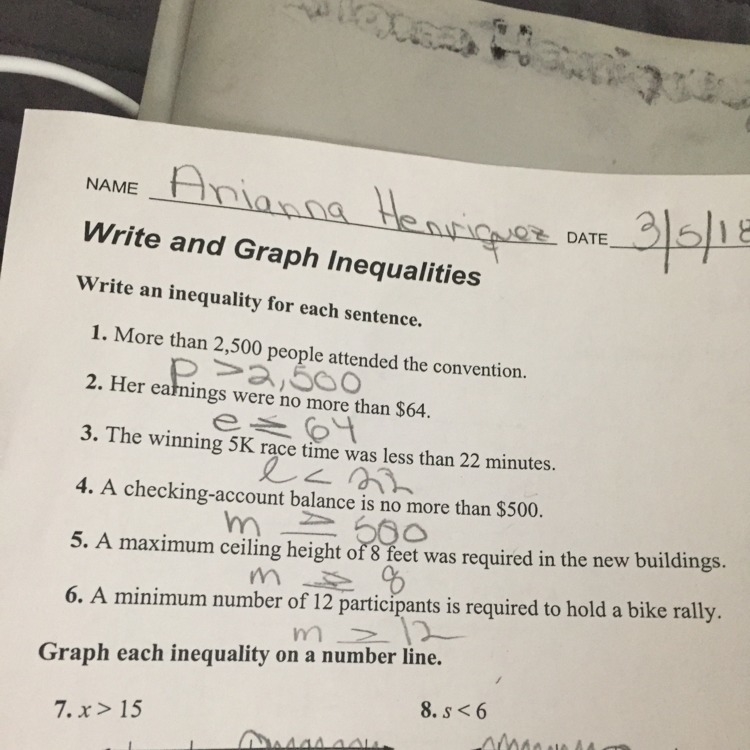 Henriquez
NAME Arianna Henriquez DATE 3/5/18
Write and Graph Inequalities
Write an inequality for each sentence.
1. More than 2,500 people attended the convention.
p > 2,500
2. Her earnings were no more than $64.
e ≤ 64
3. The winning 5K race time was less than 22 minutes.
l < 22
4. A checking-account balance is no more than $500.
m ≥ 500
5. A maximum ceiling height of 8 feet was required in the new buildings.
m ≥ 8
6. A minimum number of 12 participants is required to hold a bike rally.
m ≥ 12
Graph each inequality on a number line.
7. x > 15 8. s < 6